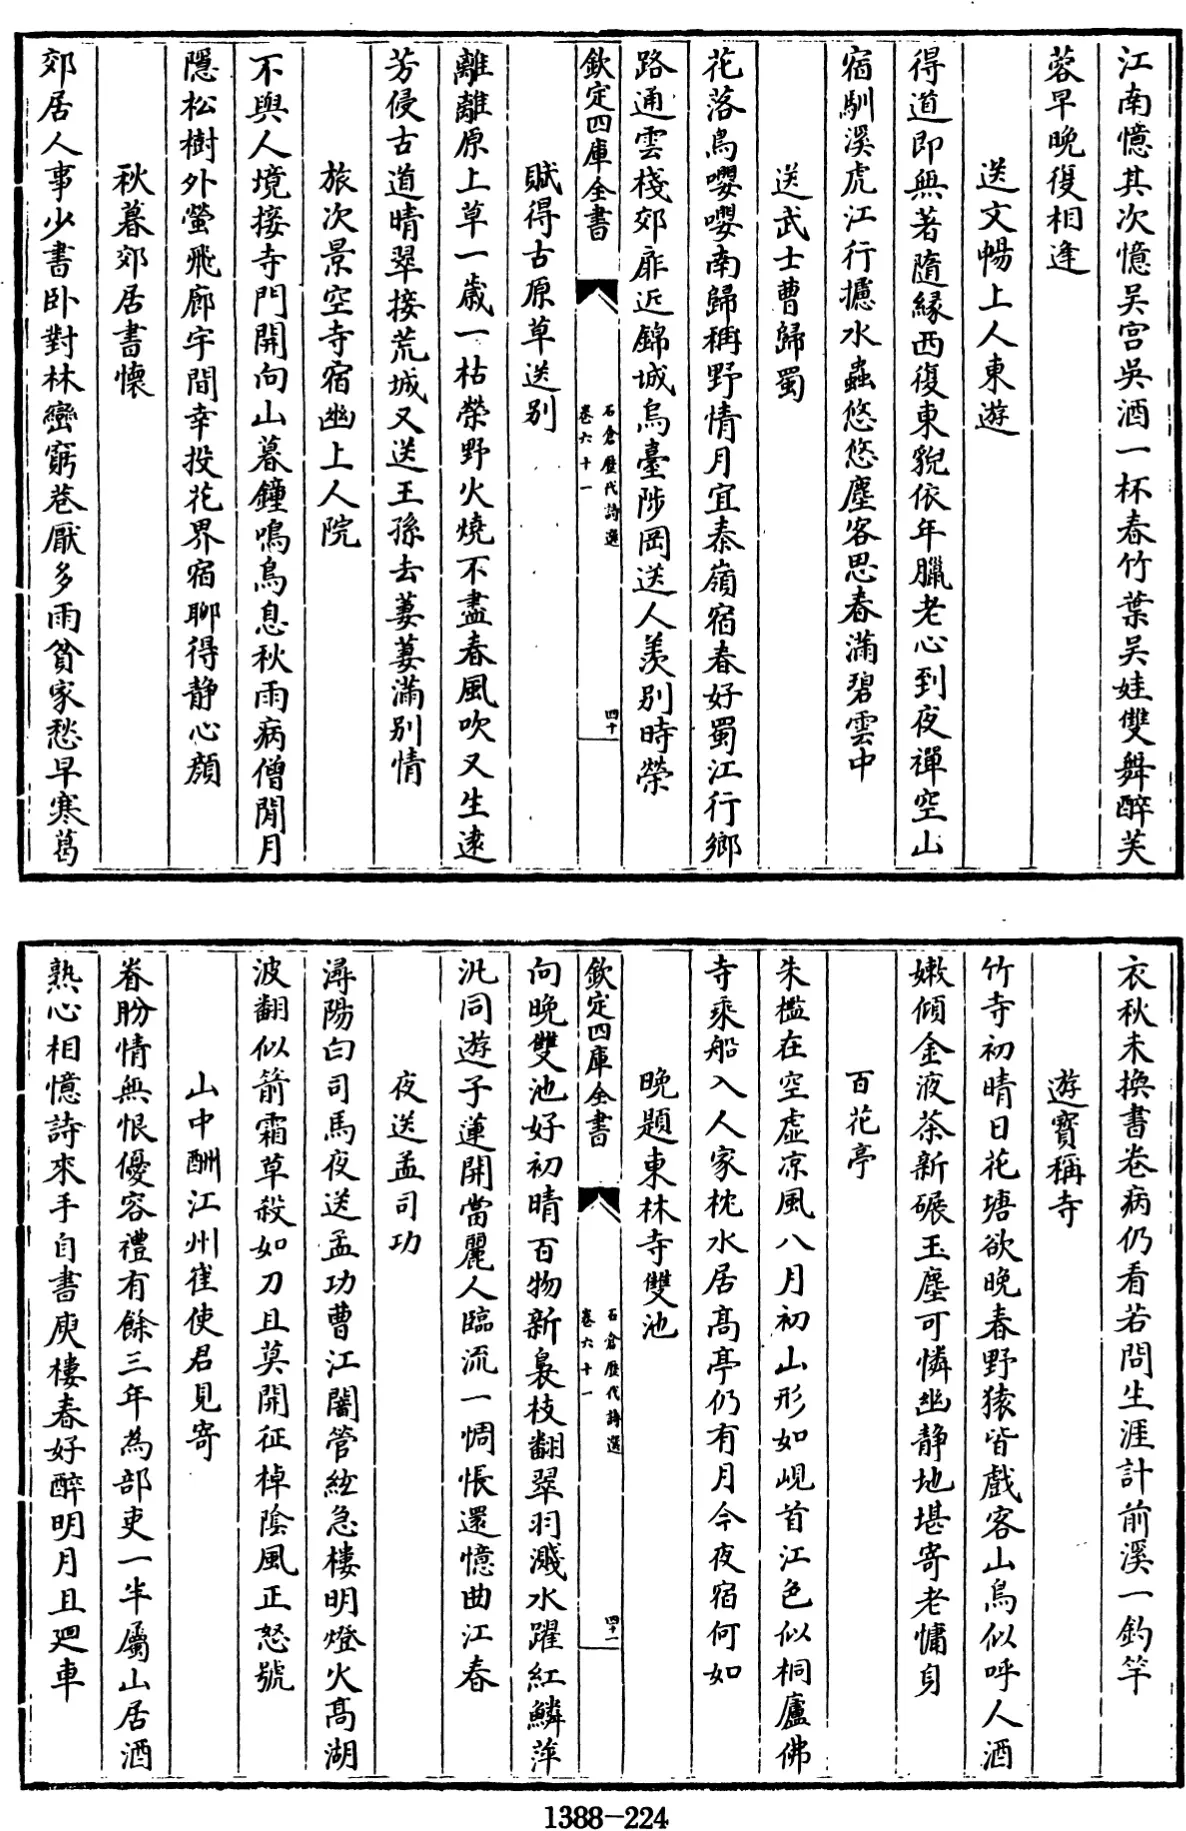 江南憶其次憶吳宫吳酒一杯春竹葉吳娃雙舞醉芙
蓉早晚復相逢
送文暢上人東遊
得道即無著隨緣西復東貌依年臘老心到夜禪空山
宿馴溪虎江行攇水蟲悠悠塵客思春滿碧雲中
送武士曹歸蜀
花落鳥嚶嚶南歸稱野情月宜秦嶺宿春好蜀江行鄉
路通雲棧郊扉近錦城烏臺陟岡送人羨别時榮
欽定四庫全書
石倉歷代詩選
卷六十一
四十
賦得古原草送别
離離原上草一歲一枯榮野火燒不盡春風吹又生逺
芳侵古道晴翠接荒城又送王孫去萋萋滿别情
旅次景空寺宿幽上人院
不與人境接寺門開向山暮鐘鳴鳥息秋雨病僧閒月
隱松樹外螢飛廊宇間幸投花界宿聊得静心顔
秋暮郊居書懷
郊居人事少書卧對林巒窮巷厭多雨貧家愁早寒葛
衣秋未換書卷病仍看若問生涯計前溪一釣竿
遊寳稱寺
竹寺初晴日花塘欲晚春野猿皆戲客山鳥似呼人酒
嫩傾金液茶新碾玉塵可憐幽静地堪寄老慵身
百花亭
朱檻在空虚凉風八月初山形如峴首江色似桐廬佛
寺乘船入人家枕水居髙亭仍有月今夜宿何如
晩題東林寺雙池
向晚雙池好初晴百物新裊枝翻翠羽濺水躍紅鱗萍
汎同遊子蓮開當麗人臨流一惆悵還憶曲江春
欽定四庫全書
石倉歷代詩選
卷六十一
四十一
夜送孟司功
潯陽白司馬夜送孟功曹江闇管絃急樓明燈火髙湖
波翻似箭霜草殺如刀且莫開征棹陰風正怒號
山中酬江州崔使君見寄
眷盼情無恨優容禮有餘三年為部吏一半屬山居酒
熟心相憶詩來手自書庾樓春好醉明月且廻車
1388-224